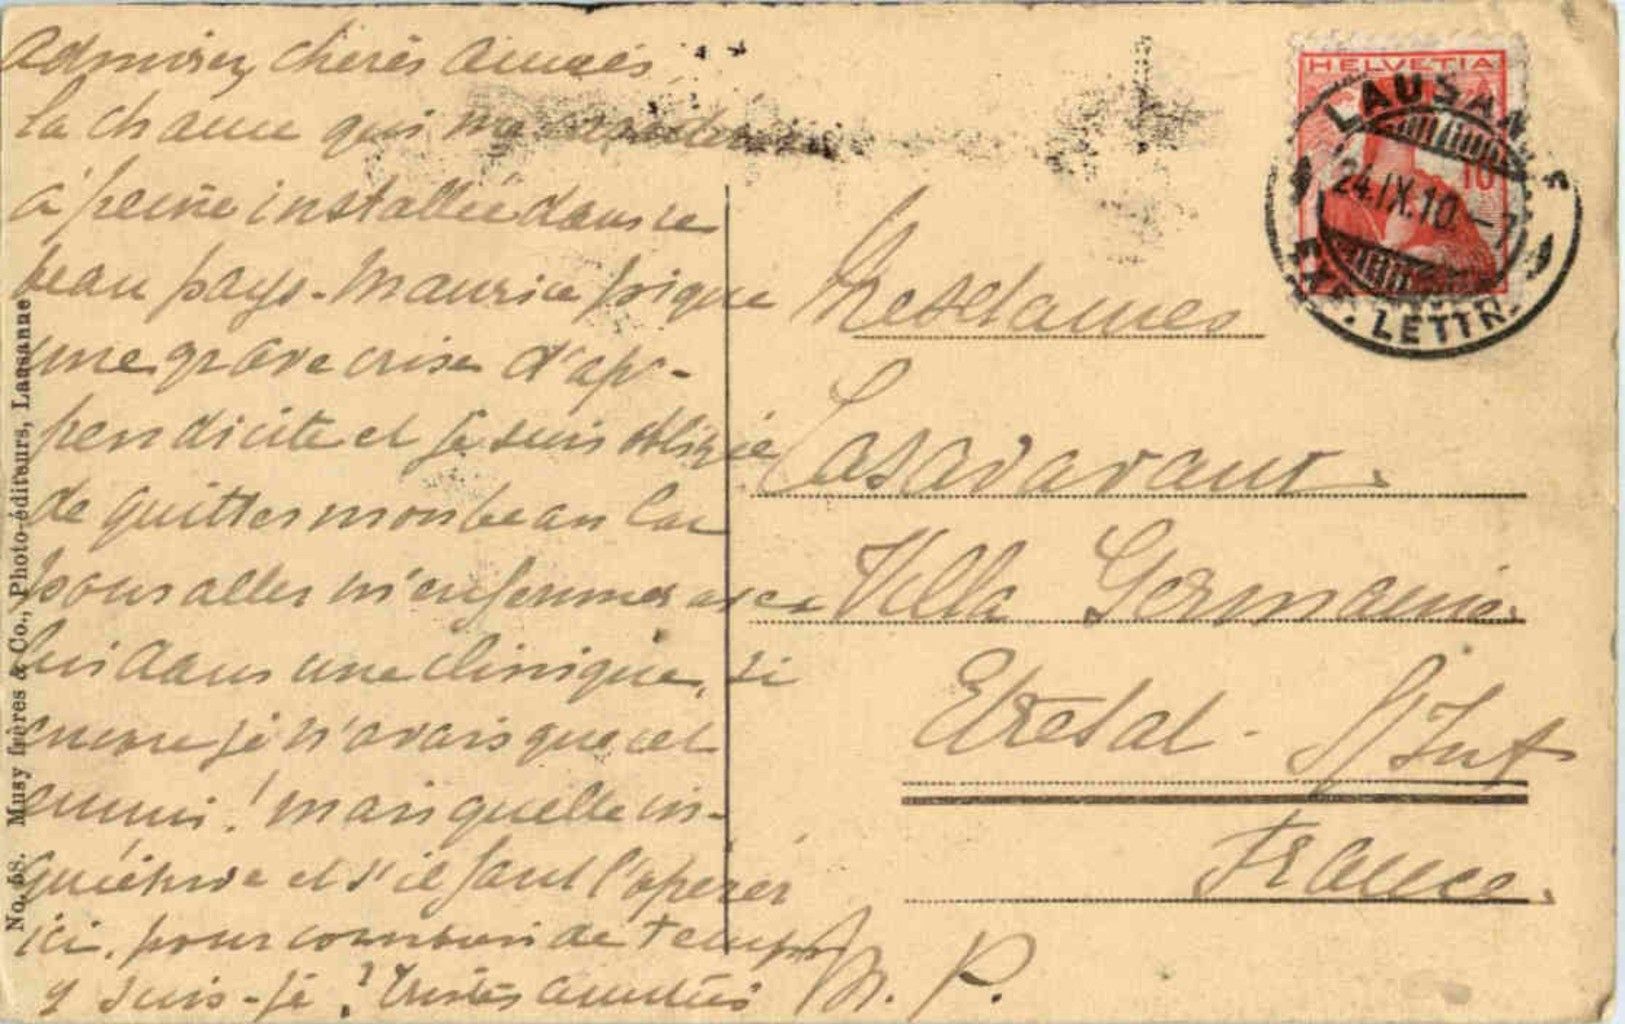 Admirez, chères amies,
la chance qui me
à peine installée dans ce
beau pays. Maurice pique
une grave crise d'ap-
pendicite et je suis obligée
de quitter mon beau lac
pour aller m'enfermer avec
lui dans une clinique, si
encore je n'avais que cet
ennui! mais quelle in-
quiétude et s'il faut l'opérer
ici, pour combien de temps
y suis-je? Tristes amitiés
M. P.
Mesdames
Casadavant.
Villa Germaine.
Etretat. S/Inf
France.
HELVETIA
10
LAUSANNE
24.IX.10.-7
EXP. LETTR.
No. 58. Musy frères & Co., Photo-éditeurs, Lausanne